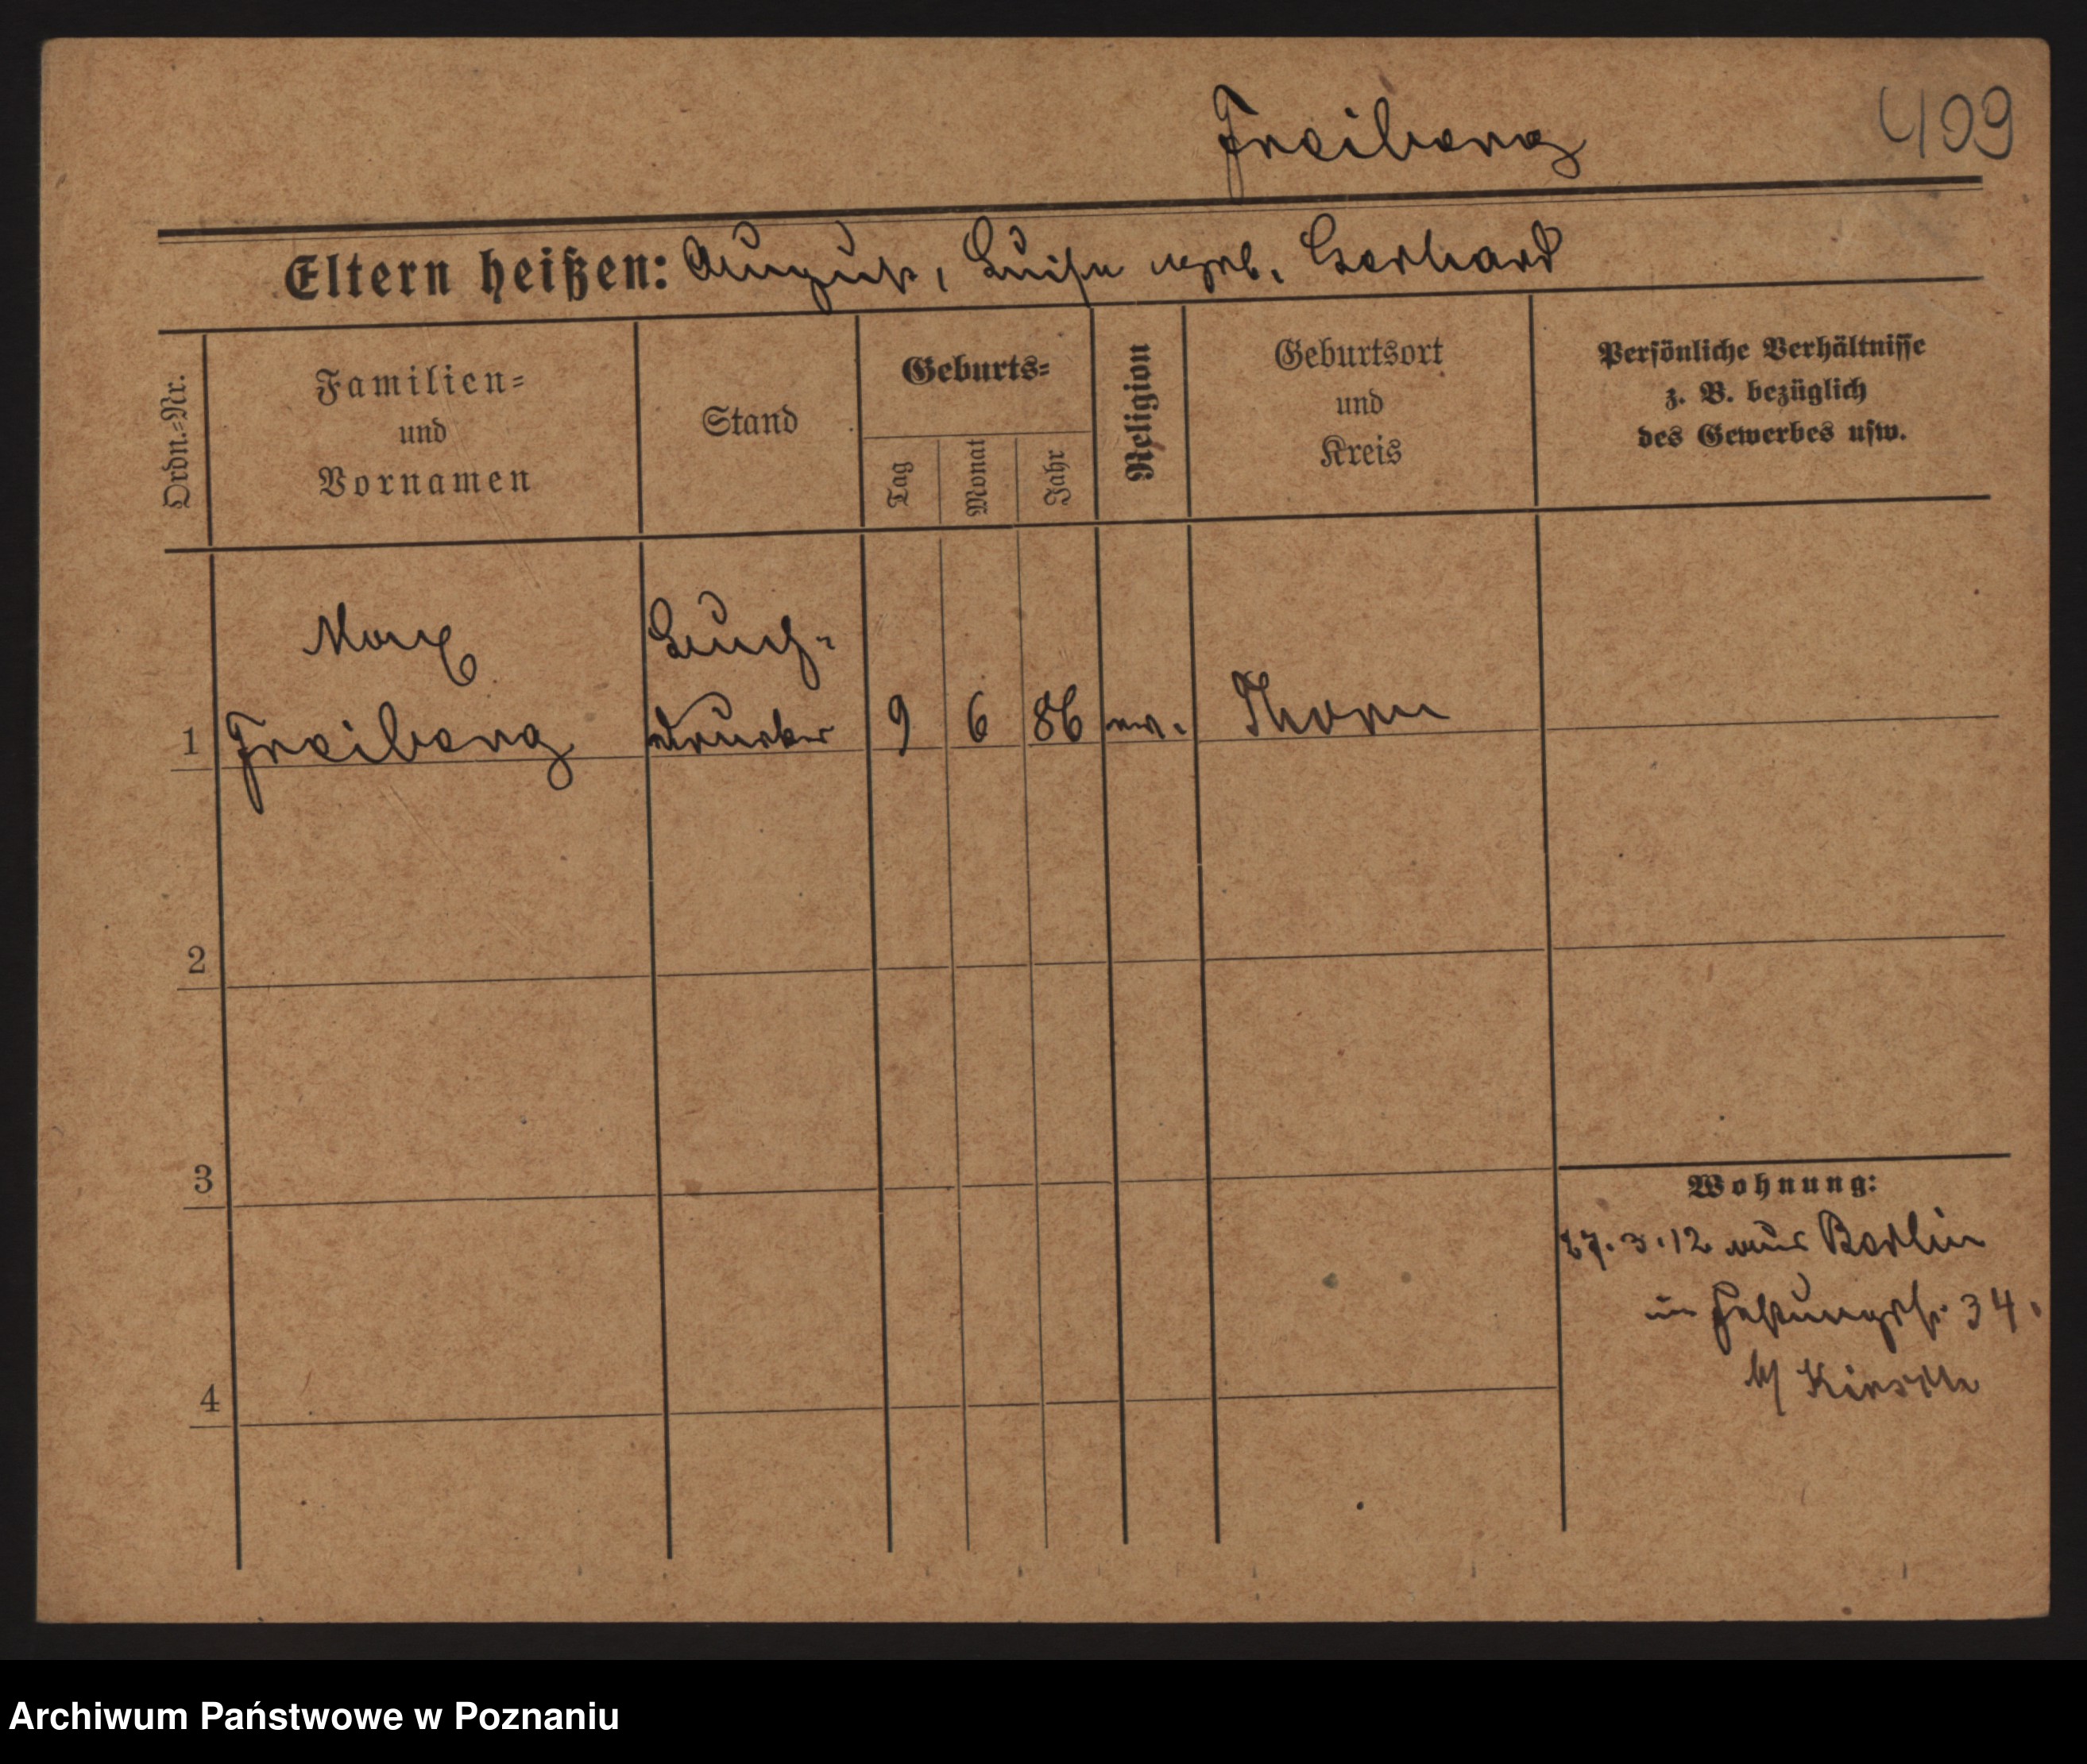 Freiberg
409
Eltern heißen: August, Luise geb. Gerhard
Ordn.-Nr.
Familien-
und
Vornamen
Stand
Geburts-
Tag
Monat
Jahr
Religion
Geburtsort
und
Kreis
Persönliche Verhältnisse
z. B. bezüglich
des Gewerbes usw.
Max
Buch-
1 Freiberg drucker 9 6 86 ev. Thorn
2
3
4
Wohnung:
27.3.12 aus Berlin
in Festungsstr. 34.
b/
Archiwum Państwowe w Poznaniu